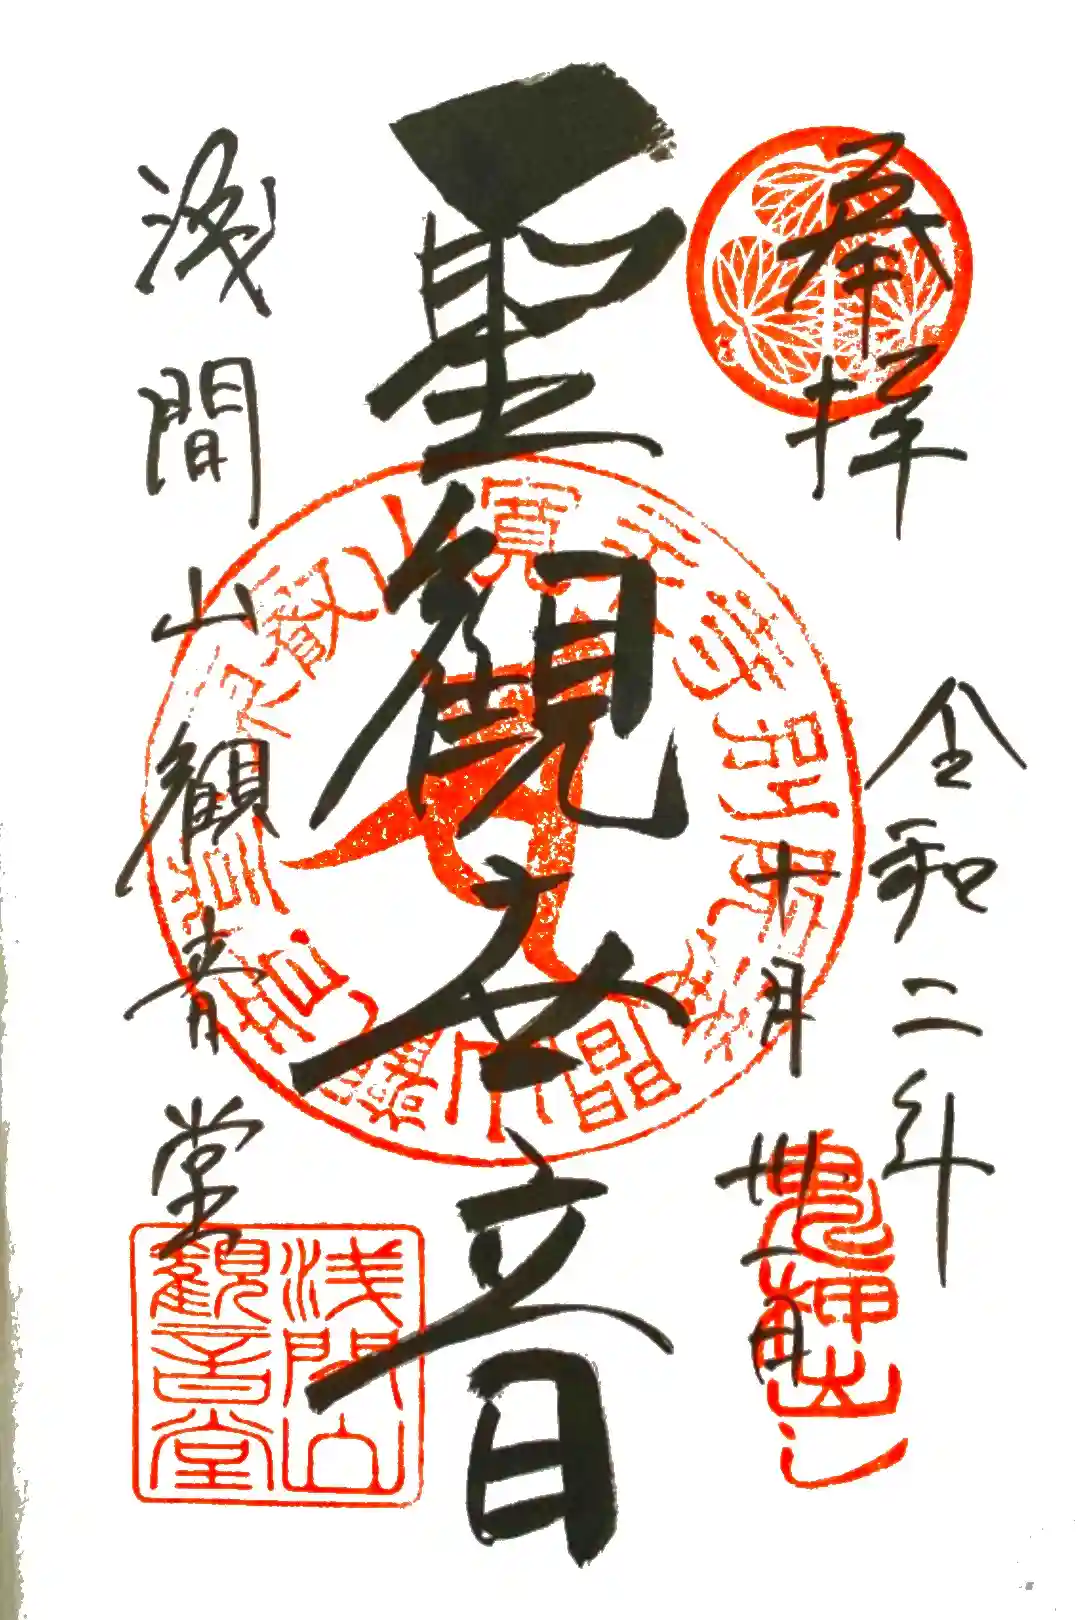 奉拝
令和二年
十月卅一日
聖観世音
浅間山観音堂
浅間山
観音堂
鬼押出し